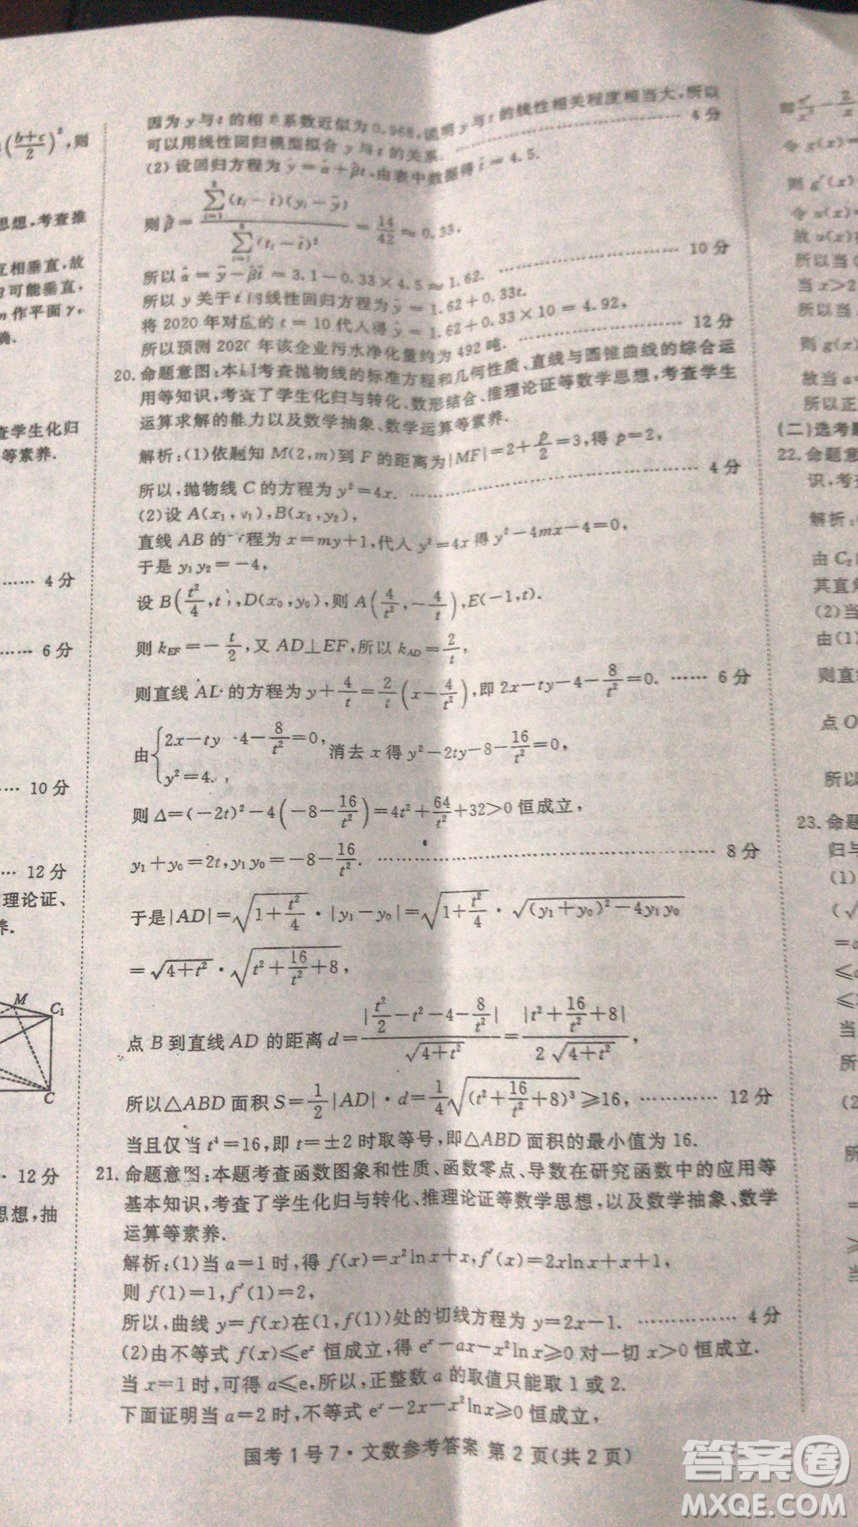 ((b+c)/2)²,则
思想,考查推
互相垂直,故
可能垂直,
m作平面γ,
确.
查学生化归
等素养.
…… 4分
…… 6分
… 10分
… 12分
理论证、
养.
M
C₁
C
… 12分
思想,抽
因为y与t的相关系数近似为0.968,说明y与t的线性相关程度相当大,所以
可以用线性回归模型拟合y与t的关系. …… 4分
(2)设回归方程为ŷ=α̂+β̂t,由表中数据得t̄=4.5.
则β̂=∑(tᵢ-t̄)(yᵢ-ȳ)/∑(tᵢ-t̄)²=14/42≈0.33,
所以α̂=ȳ-β̂t̄=3.1-0.33×4.5≈1.62. …… 10分
所以y关于t的线性回归方程为ŷ=1.62+0.33t.
将2020年对应的t=10代入得ŷ=1.62+0.33×10=4.92,
所以预测2020年该企业污水净化量约为492吨. …… 12分
20.命题意图:本题考查抛物线的标准方程和几何性质、直线与圆锥曲线的综合运
用等知识,考查了学生化归与转化、数形结合、推理论证等数学思想,考查学生
运算求解的能力以及数学抽象、数学运算等素养.
解析:(1)依题知M(2,m)到F的距离为|MF|=2+p/2=3,得p=2,
所以,抛物线C的方程为y²=4x. …… 4分
(2)设A(x₁,y₁),B(x₂,y₂),
直线AB的方程为x=my+1,代入y²=4x得y²-4my-4=0,
于是y₁y₂=-4,
设B(t²/4,t),D(x₀,y₀),则A(4/t²,-4/t),E(-1,t).
则k_EF=-t/2,又AD⊥EF,所以k_AD=2/t,
则直线AD的方程为y+4/t=2/t(x-4/t²),即2x-ty-4-8/t²=0. …… 6分
由{2x-ty-4-8/t²=0, y²=4x,消去x得y²-2ty-8-16/t²=0,
则Δ=(-2t)²-4(-8-16/t²)=4t²+64/t²+32>0恒成立,
y₁+y₀=2t,y₁y₀=-8-16/t². …… 8分
于是|AD|=√(1+t²/4)·|y₁-y₀|=√(1+t²/4)·√((y₁+y₀)²-4y₁y₀)
=√(4+t²)·√(t²+16/t²+8),
点B到直线AD的距离d=|t²/2-t²-4-8/t²|/√(4+t²)=|t²+16/t²+8|/(2√(4+t²)),
所以△ABD面积S=1/2|AD|·d=1/4√((t²+16/t²+8)³)≥16, ………… 12分
当且仅当t⁴=16,即t=±2时取等号,即△ABD面积的最小值为16.
21.命题意图:本题考查函数图象和性质、函数零点、导数在研究函数中的应用等
基本知识,考查了学生化归与转化、推理论证等数学思想,以及数学抽象、数学
运算等素养.
解析:(1)当a=1时,得f(x)=x²lnx+x,f′(x)=2xlnx+x+1,
则f(1)=1,f′(1)=2,
所以,曲线y=f(x)在(1,f(1))处的切线方程为y=2x-1. …………… 4分
(2)由不等式f(x)≤eˣ恒成立,得eˣ-ax-x²lnx≥0对一切x>0恒成立.
当x=1时,可得a≤e,所以,正整数a的取值只能取1或2.
下面证明当a=2时,不等式eˣ-2x-x²lnx≥0恒成立,
国考1号7·文数参考答案 第2页(共2页)
令g(x)
则g′(x)
令u(x)
故u(x)
所以当
当x>2
所以
则g(x)
故当
所以正
(二)选考题
22.命题意
识,考查
解析:
由C₂
其直角
(2)当
由(1)
则直线
点O
所以
23.命题
归与
(1)
(√
=a
≤
≤
所
(2
答案圈
MXQE.COM